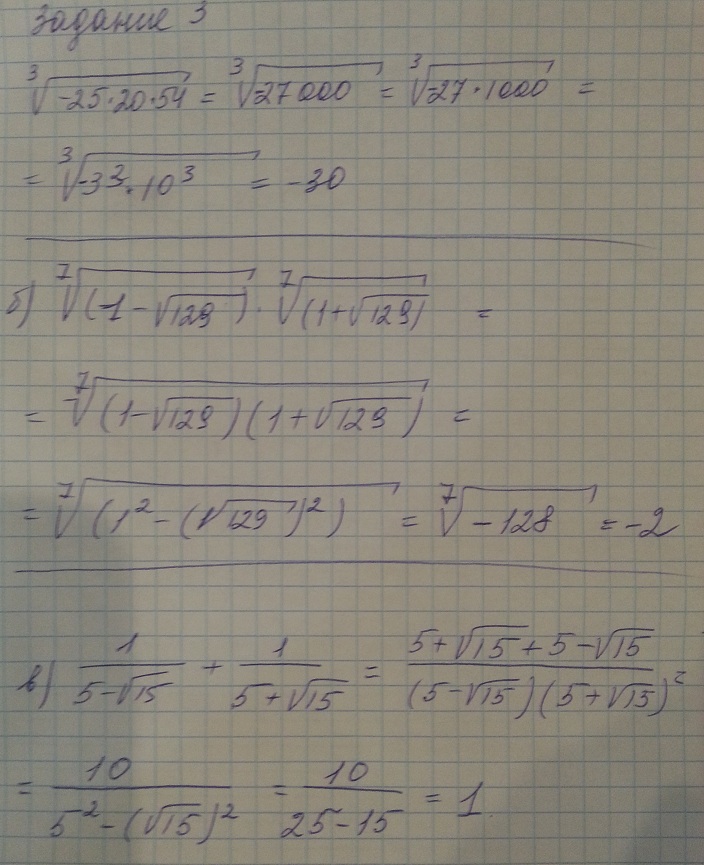 Задание 3
∛(-25·20·54) = ∛(-27000) = ∛(-27·1000) =
= ∛(-3³·10³) = -30
б) ⁷√(1-√129) · ⁷√(1+√129) =
= ⁷√((1-√129)(1+√129)) =
= ⁷√(1²-(√129)²) = ⁷√(-128) = -2
в) 1/(5-√15) + 1/(5+√15) = (5+√15+5-√15)/((5-√15)(5+√15)) =
= 10/(5²-(√15)²) = 10/(25-15) = 1